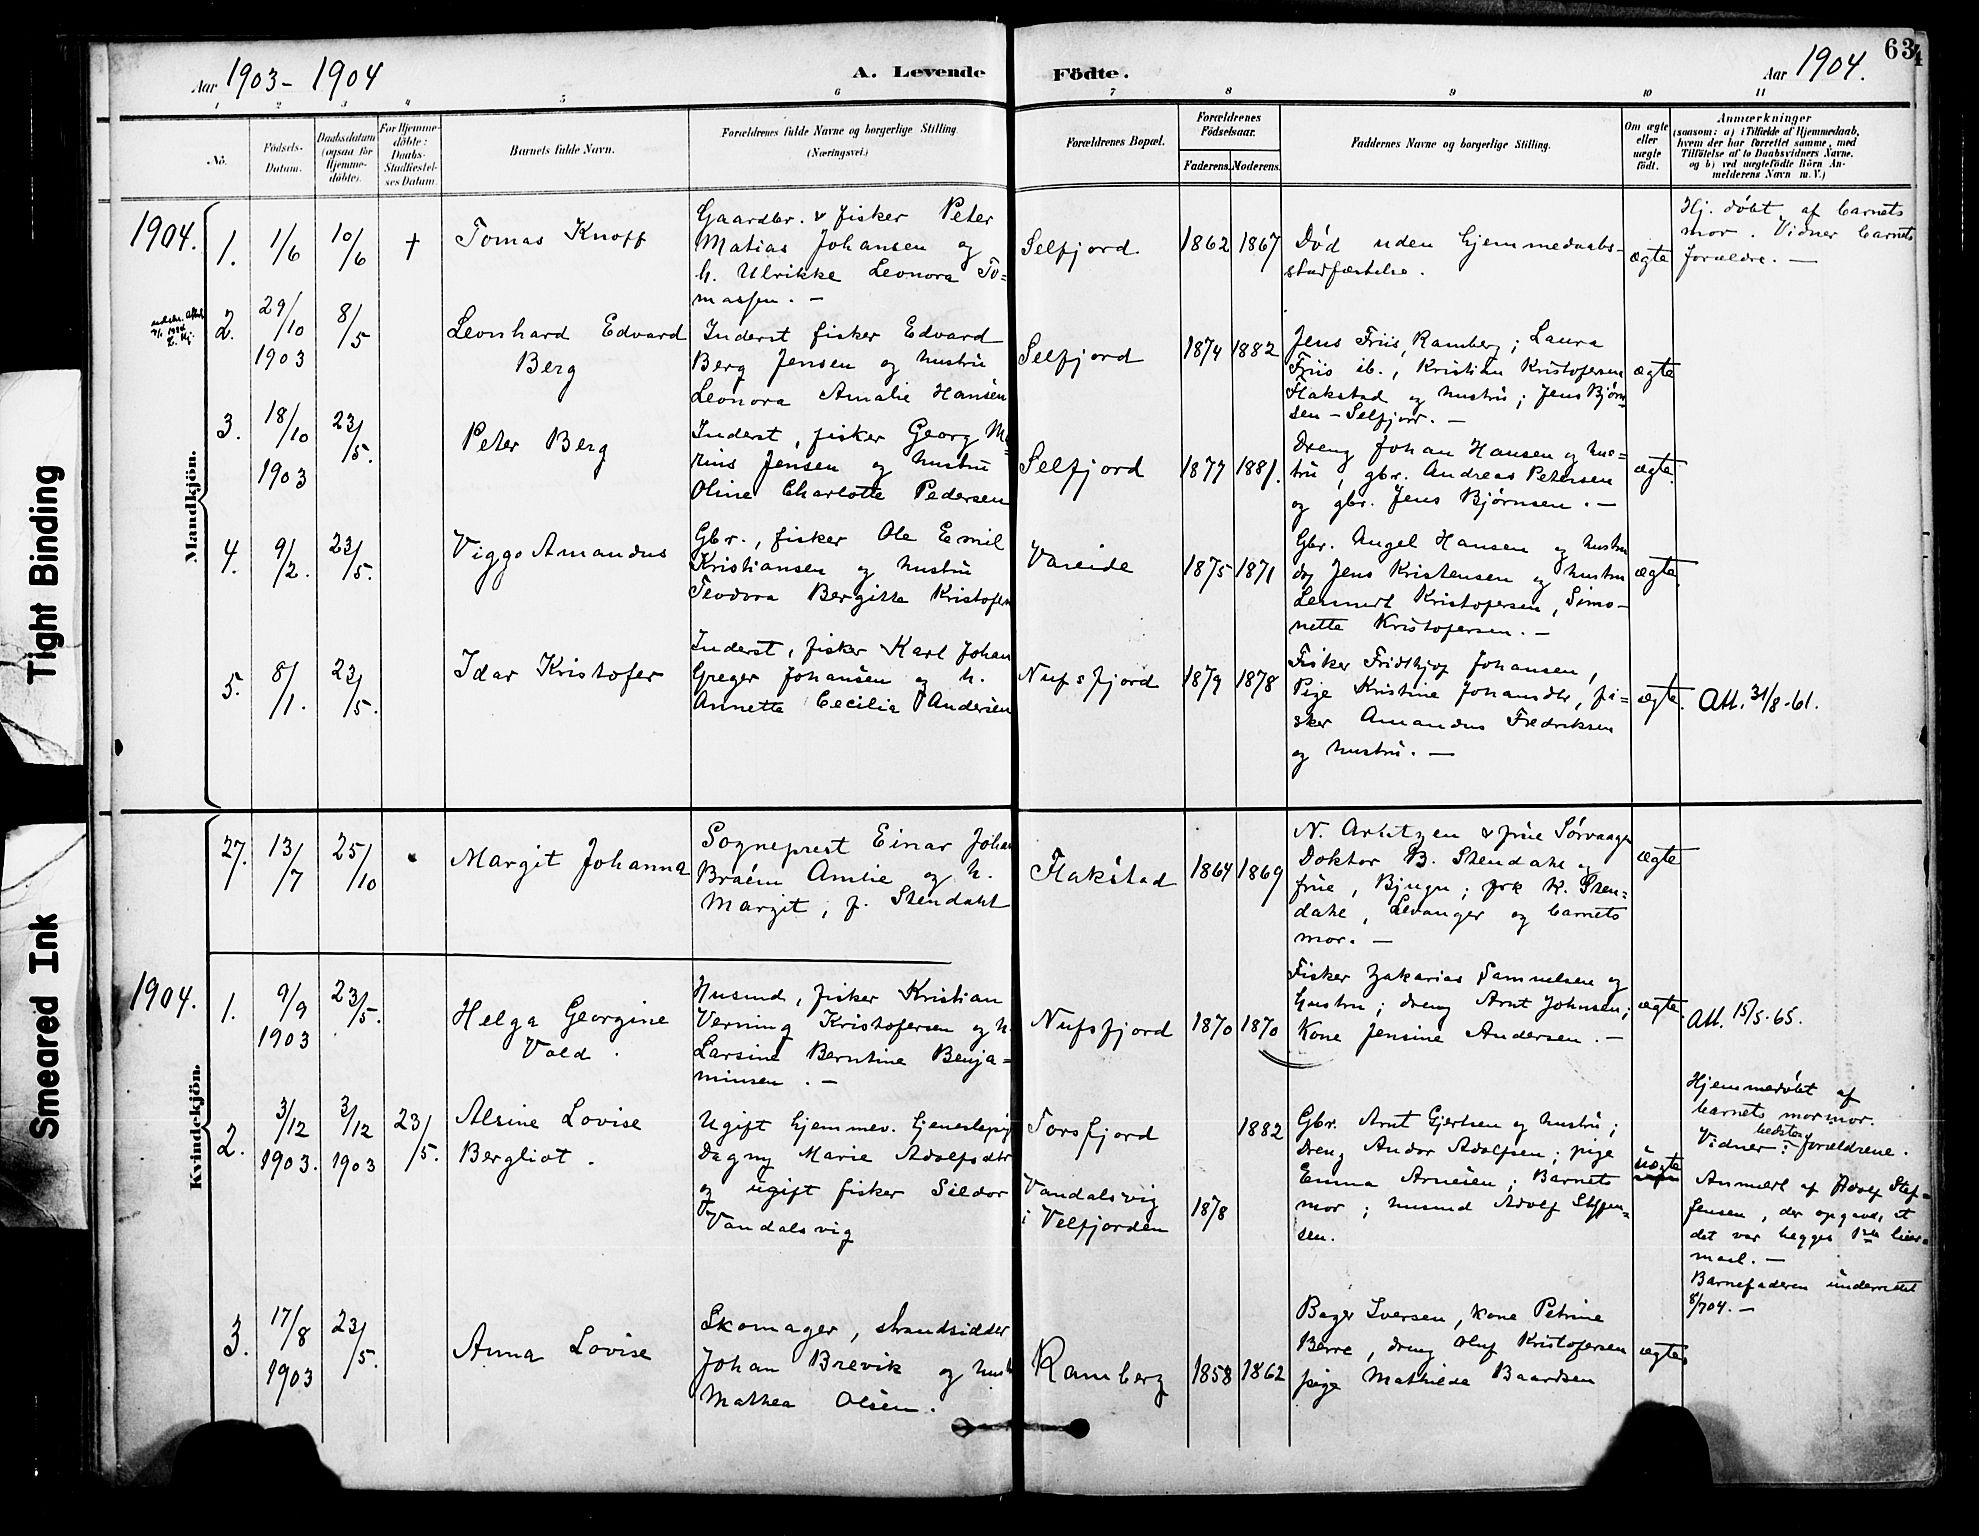 63
Aar 1903-1904
A. Levende Födte.
Aar 1904.
1 2 3 4 5 6 7 8 9 10 11
No.
Födsels-Datum.
Daabsdatum (ogsaa for Hjemme-döbte).
For Hjemme-döbte: Daabs-Stadfæstel-ses Datum.
Barnets fulde Navn.
Forældrenes fulde Navne og borgerlige Stilling
(Næringsvei.)
Forældrenes Bopæl.
Forældrenes Födselsaar.
Faderens. Moderens.
Faddernes Navne og borgerlige Stilling.
Om ægte eller uægte födt.
Anmærkninger
(saasom: a) i Tilfælde af Hjemmedaab,
hvem der har forrettet samme, med
Tilföielse af to Daabsvidners Navne,
og b) ved uægtefödte Börn An-
melderens Navn m. V.)
Mandkjön.
1904.
1. 1/6 10/6 † Tomas Knoff
Gaardbr. & fisker Peter
Matias Johansen og
h. Ulrikke Leonora To-
massen. —
Selfjord 1862 1867
Død uden hjemmedaabs-
stadfæstelse.
ægte
Hj. døbt af barnets
mor. Vidner barnets
forældre. —
2. 29/10 1903 8/5 Leonhard Edvard
Berg
Inderst fisker Edvard
Berg Jensen og hustru
Leonora Amalie Hansen
Selfjord 1874 1882
Jens Friis, Ramberg; Laura
Friis ib., Kristian Kristofersen
Flakstad og hustru; Jens Bjørn-
sen - Selfjord. —
ægte
3. 18/10 1903 23/5. Peter Berg
Inderst, fisker Georg Ma-
rius Jensen og hustru
Oline Charlotte Pedersen
Selfjord 1877 1881.
Dreng Johan Hansen og hus-
tru, gbr. Andreas Petersen
og gbr. Jens Bjørnsen. —
ægte.
4. 9/2. 23/5. Viggo Amandus
Gbr., fisker Ole Emil
Kristiansen og hustru
Teodora Bergitte Kristofers
Vareide 1875 1871
Gbr. Angel Hansen og hustru
do Jens Kristensen og hustru
Lennert Kristofersen, Simo-
nette Kristofersen. —
ægte.
5. 8/1. 23/5. Idar Kristofer
Inderst, fisker Karl Johan
Greger Johansen og h.
Annette Cecilia Andersen
Nufsfjord 1879 1878
Fisker Fridthjof Johansen,
Pige Kristine Johansdtr, fi-
sker Amandus Fredriksen
og hustru. —
ægte. Att. 31/8-61.
Kvindekjön.
27. 13/7 25/10 Margit Johanna
Sogneprest Einar Johan
Braém Amlie og h.
Margit, f. Stendahl
Flakstad 1864 1869
N. Arbitzen & frue Sørvaagen
Doktor B. Stendahl og
frue, Bjugn; frk K. Sten-
dahl, Levanger og barnets
mor. —
ægte
1904.
1. 9/9 1903 23/5. Helga Georgine
Vold.
Husmd, fisker Kristian
Verning Kristofersen og h.
Larsine Berntine Benja-
minsen. —
Nufsfjord 1870 1870
Fisker Zakarias Samuelsen og
hustru; dreng Arnt Johnsen;
Kone Jensine Andersen. —
ægte. Att. 15/5-65.
2. 3/12 1903. 3/12 1903 23/5. Alsine Lovise
Bergliot.
Ugift hjemmev. tjenestepige
Dagny Marie Adolfsdtr
og ugift fisker Sildor
Vandalsvig
Torsfjord 1882
Vandalsvig
i Velfjorden 1878
Gbr. Arnt Gjertsen og hustru;
Dreng Andor Adolfsen; pige
Emma Arnesen; Barnets
mor; husmd Adolf Steffen-
sen.
uægte
Hjemmedøbt af
barnets mormor.
Vidner: bedsteforældrene.
Anmeldt af Adolf Stef-
fensen, der opgav, at
det var begges 1ste leier-
maal. —
Barnefaderen underrettet
8/7 04. —
3. 17/8 1903 23/5. Anna Lovise
Skomager, strandsidder
Johan Brevik og hust
Mathea Olsen.
Ramberg 1858 1862
Bager Iversen, kone Petrine
Berre, dreng Oluf Kristofersen
pige Mathilde Baardsen
ægte
Tight Binding
Smeared Ink